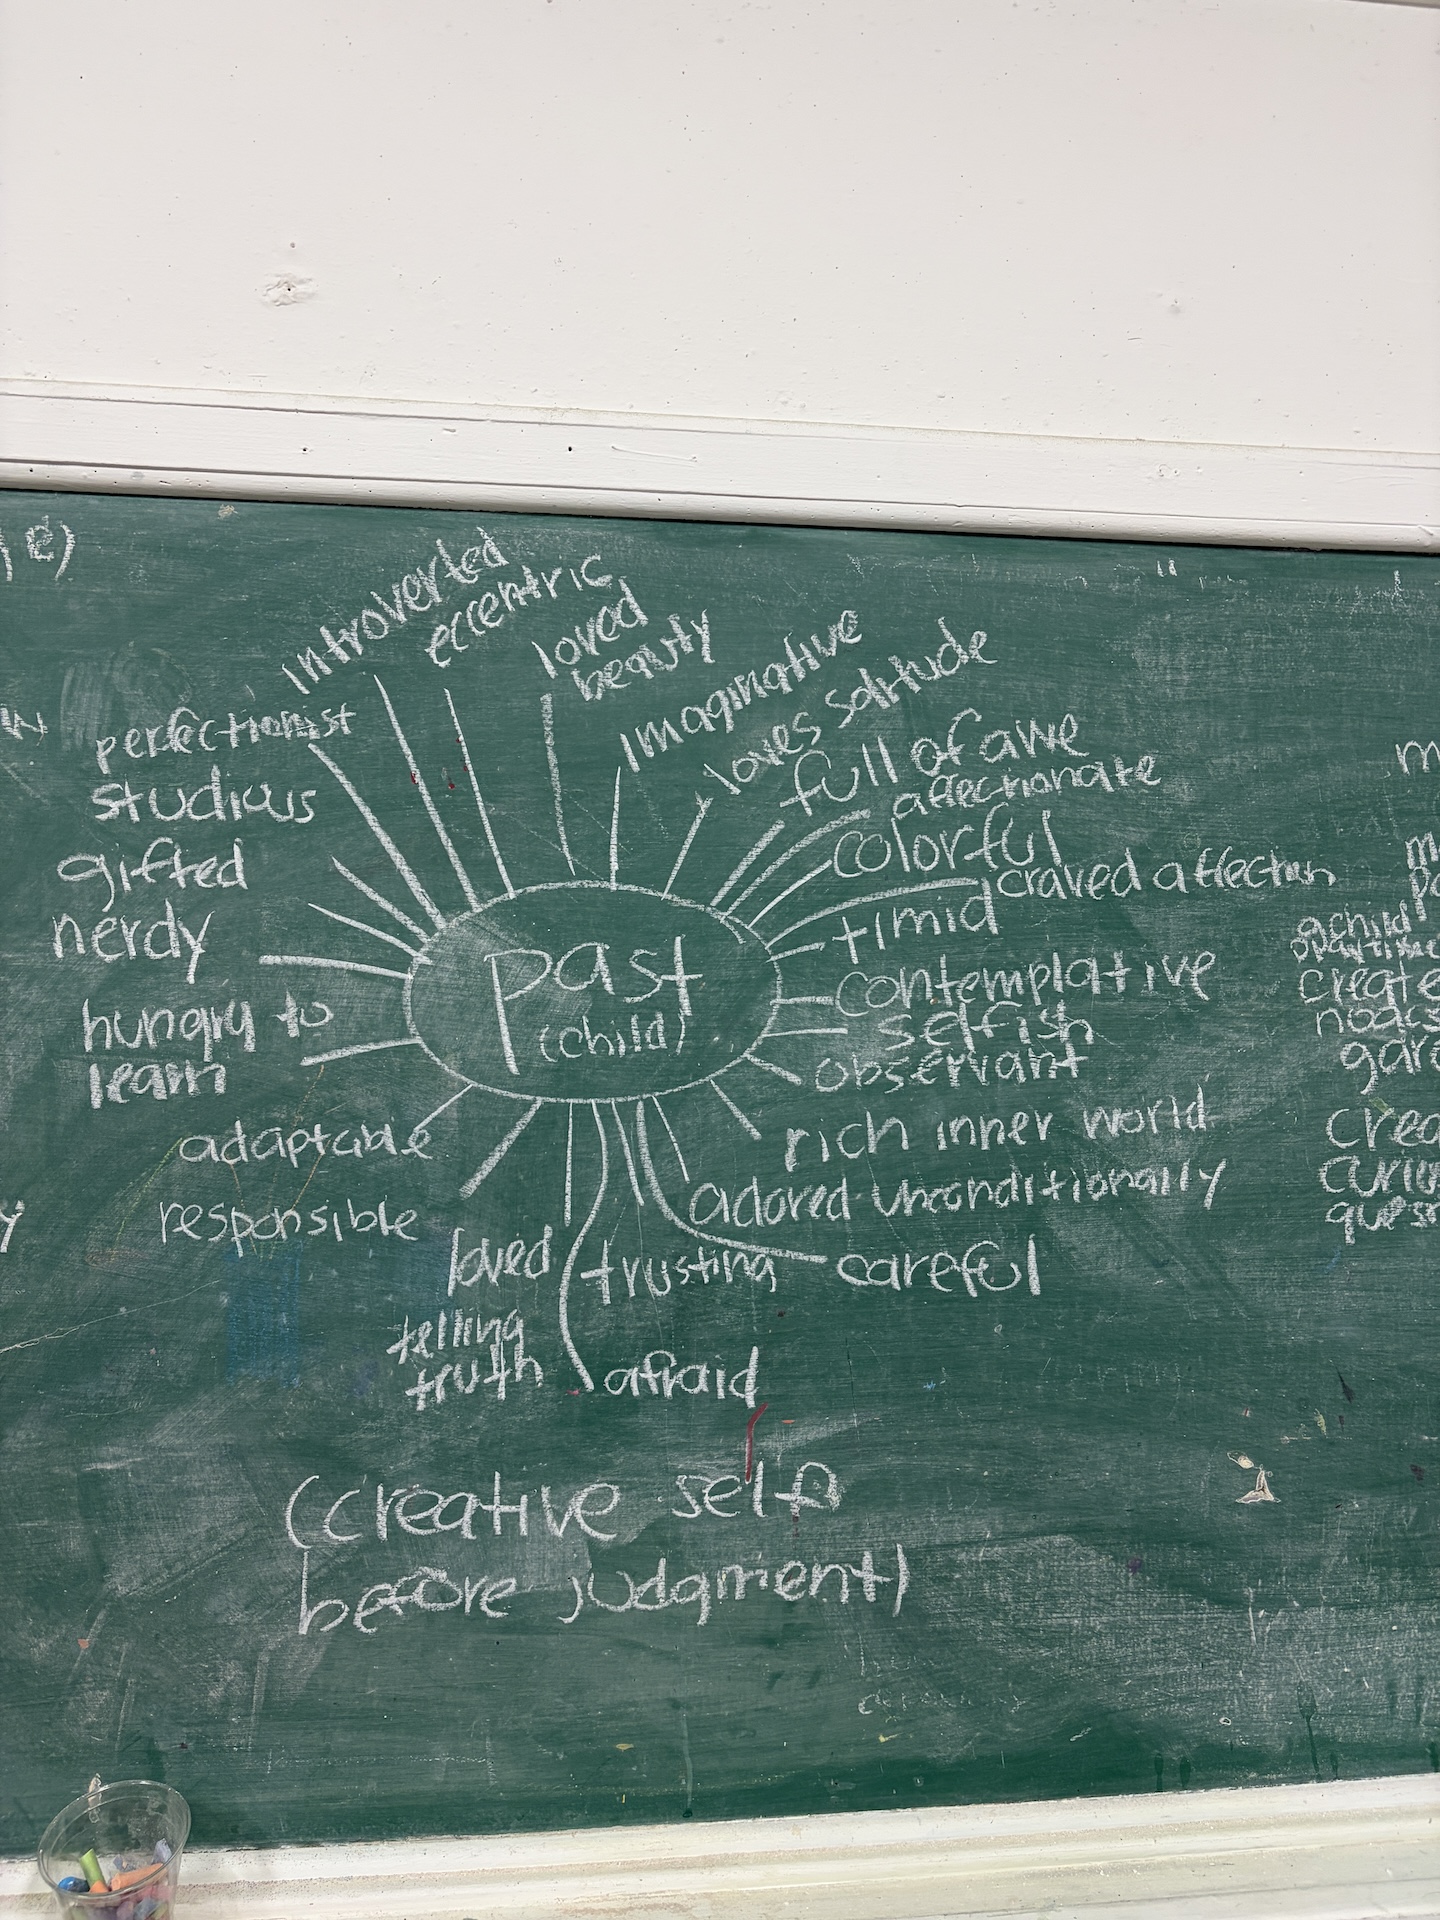 introverted
eccentric
loved
beauty
imaginative
loves solitude
full of awe
affectionate
colorful
craved affection
timid
contemplative
selfish
observant
rich inner world
adored unconditionally
careful
trusting
afraid
loved
telling
truth
responsible
adaptable
hungry to
learn
nerdy
gifted
studious
perfectionist
past
(child)
(creative self
before judgment)
a child
create